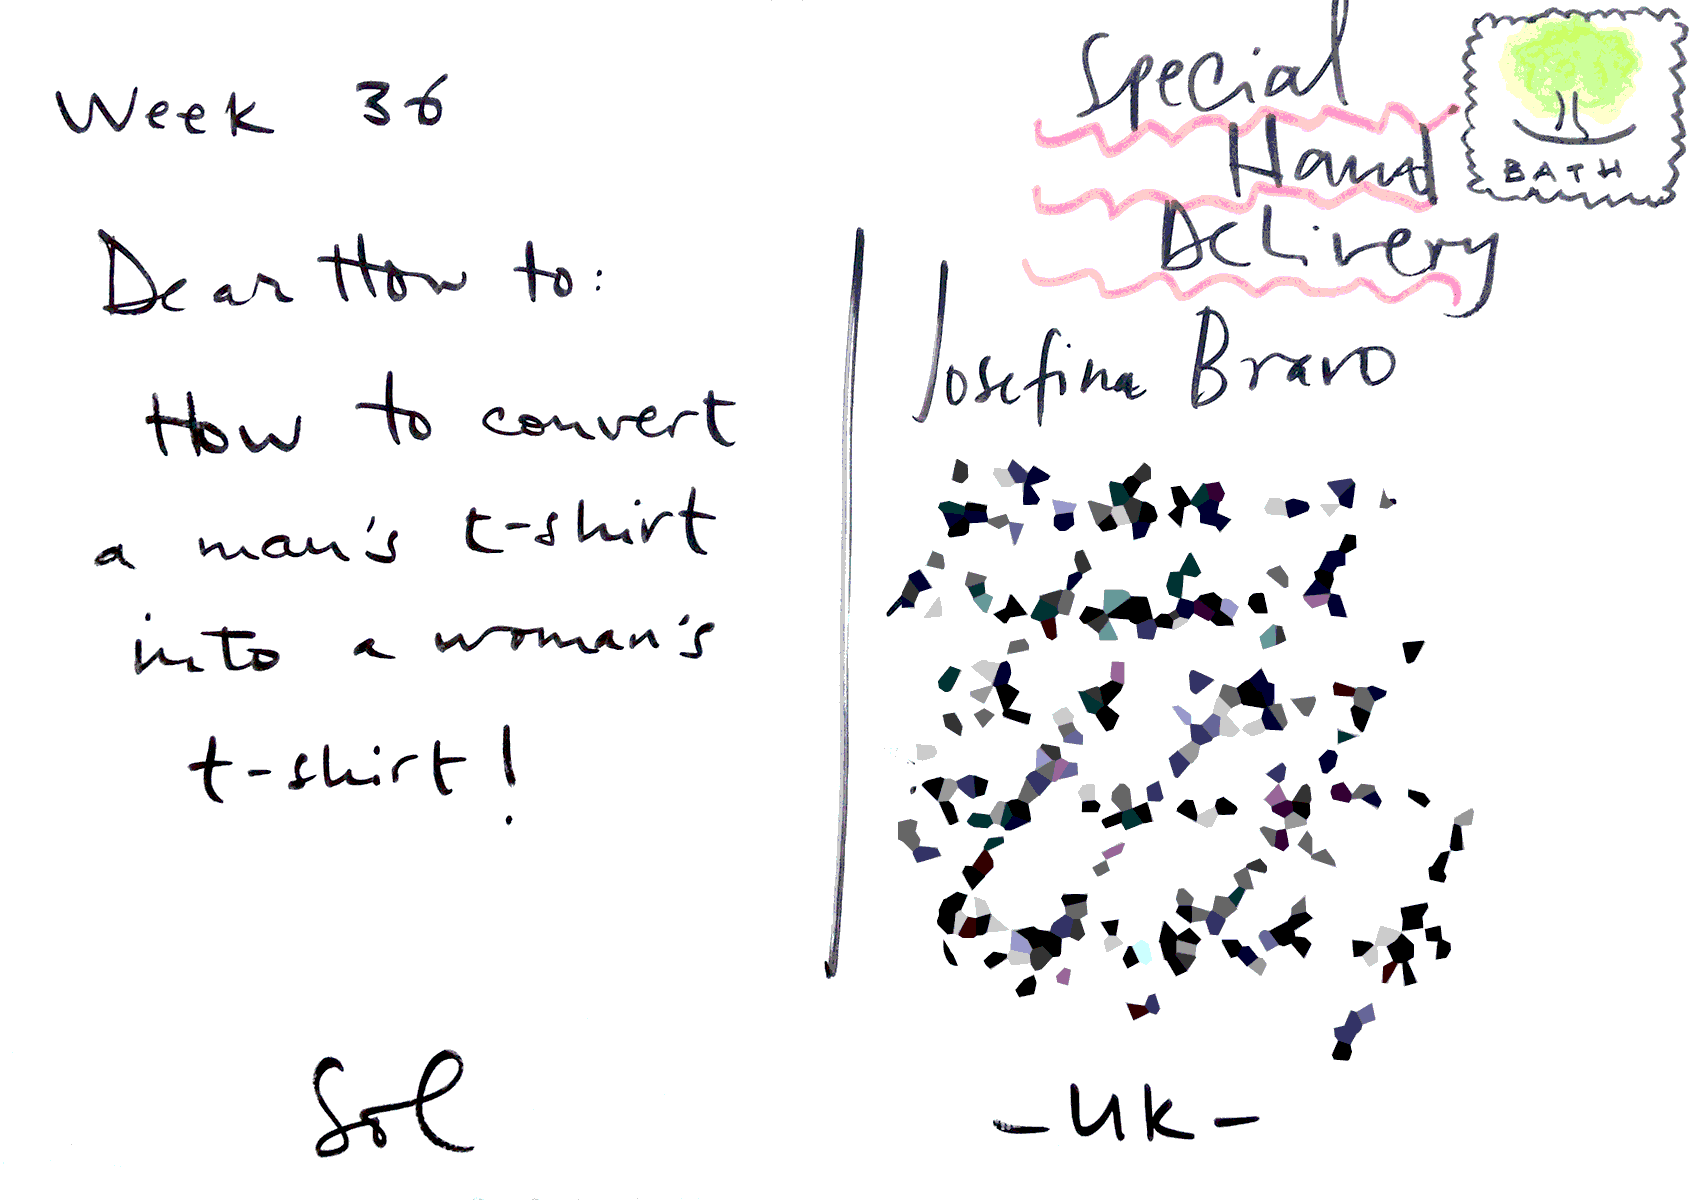 Week 36
Dear How to:
How to convert
a man's t-shirt
into a woman's
t-shirt!
Sol
Special
Hand
Delivery
BATH
Josefina Bravo
- UK -